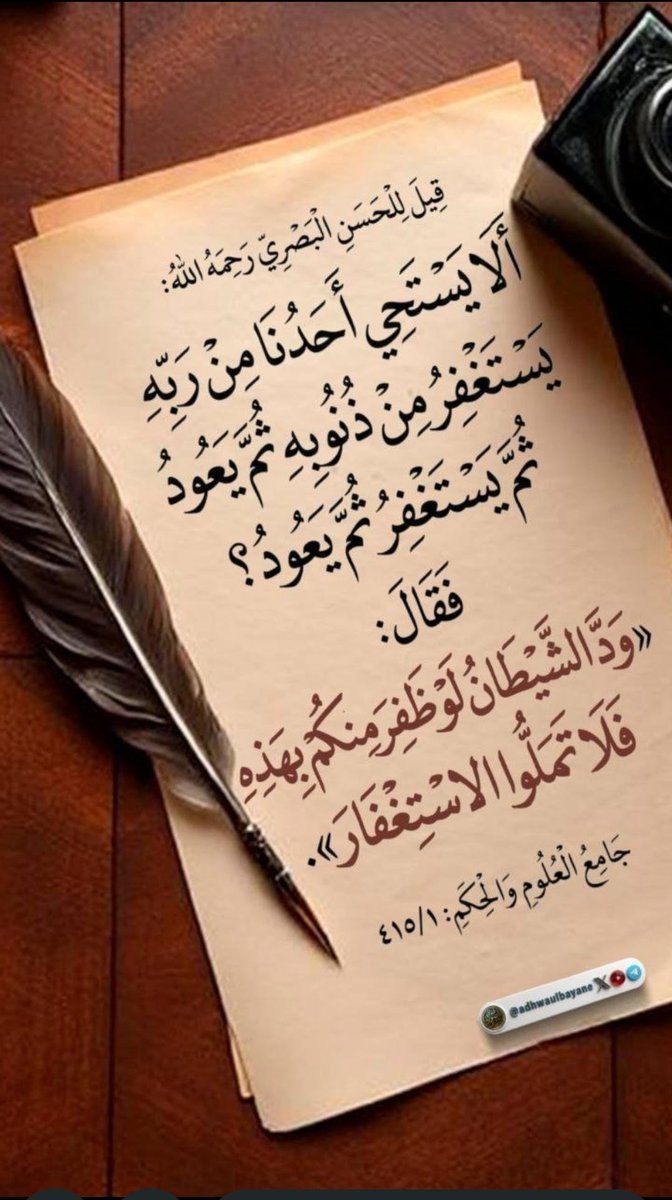 قِيلَ لِلْحَسَنِ الْبَصْرِيّ رَحِمَهُ اللهُ:
أَلَا يَسْتَحِي أَحَدُنَا مِنْ رَبِّهِ
يَسْتَغْفِرُ مِنْ ذُنُوبِهِ ثُمَّ يَعُودُ
ثُمَّ يَسْتَغْفِرُ ثُمَّ يَعُودُ؟
فَقَالَ:
«وَدَّ الشَّيْطَانُ لَوْ ظَفِرَ مِنكُمْ بِهَذِهِ
فَلَا تَمَلُّوا الاسْتِغْفَارَ».
جَامِعُ الْعُلُومِ وَالْحِكَمِ: ٤١٥/١
@adhwaulbayane